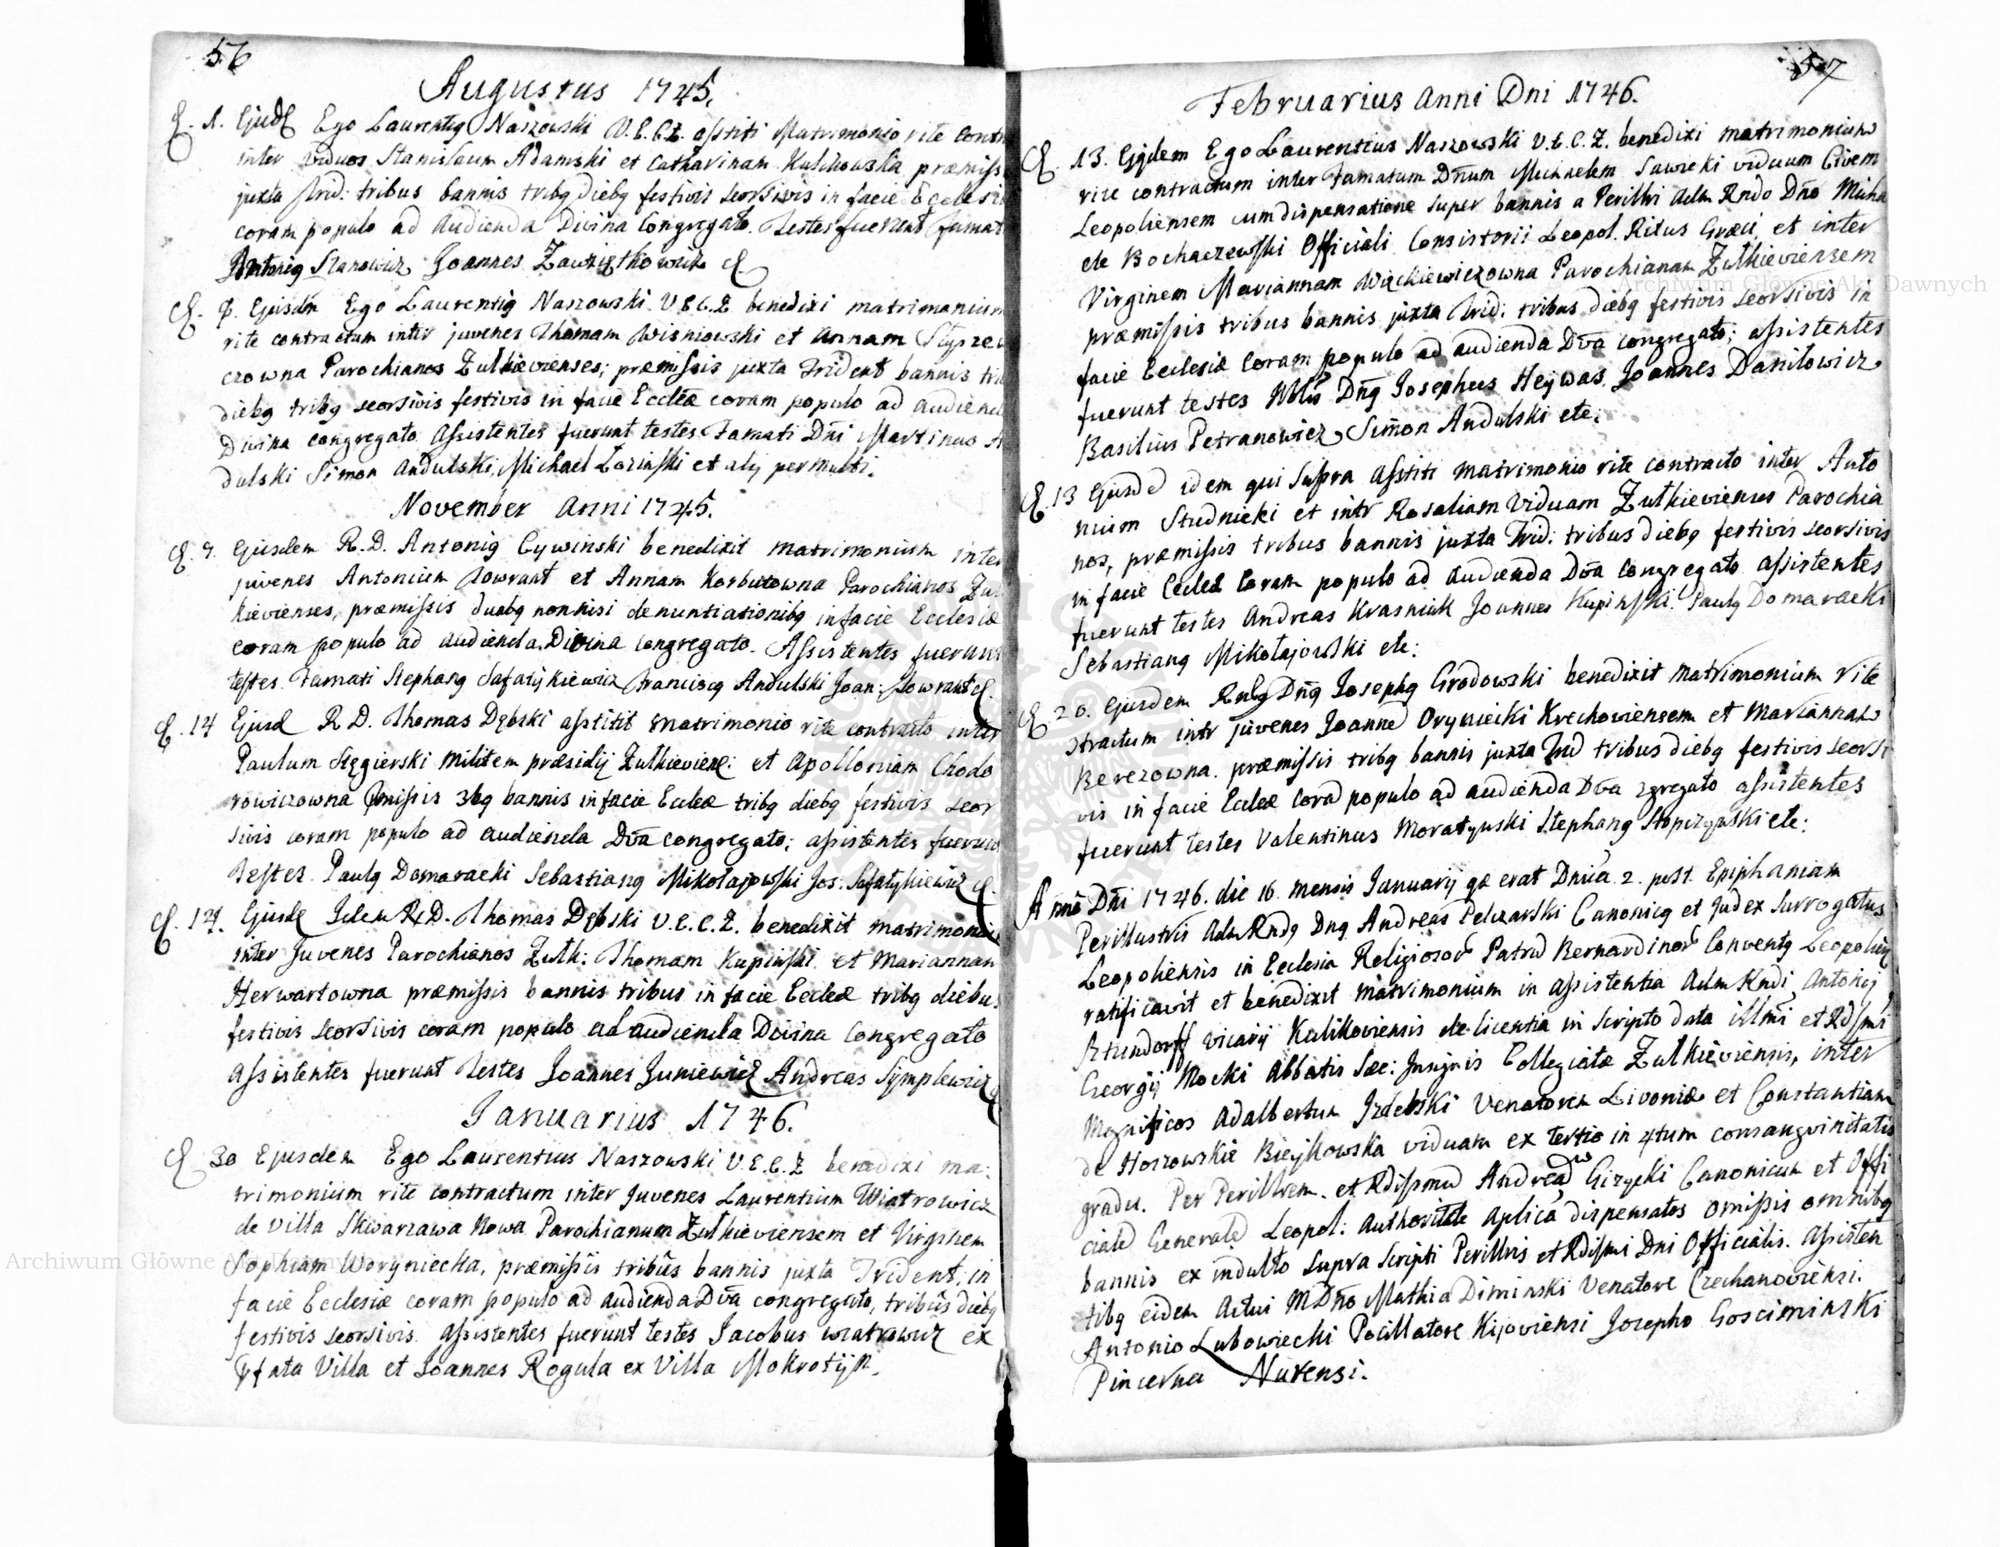 56
Augustus 1745.
1. Ejusd Ego Laurentig Naszowski V.E.C.Z. assiti Matrimonio rite contr
inter viduos Stanislaum Adamski et Catharinam præmiss
juxta Trid: tribus bannis tribg diebg festivis seorsivis in facie Ecclesi
coram populo ad audienda Divina Congregato. Testes fuerunt famat
Antonig Stanowicz Joannes
Ejusdem Ego Laurentig Naszowski V.E.C.Z benedixi matrimonium
rite contractum inter juvenes Thomam Wisniowski et Annam
czowna Parochianos Zulkievienses; præmissis juxta Trident bannis tri
diebg tribg seorsivis festivis in facie Eccleæ coram populo ad audiend
Divina congregato. Assistentes fuerunt testes Famati Dni Martinus A
dulski Simon Andulski, Michael Lozinski et alij permulti.
November Anni 1745.
9. Ejusdem R.D. Antonig Cywinski benedixit matrimonium inter
juvenes Antonium Lowrant et Annam Korbutowna Parochianos Zul
kievienses, præmissis duabg nonnisi denuntiationibg in facie Ecclesiæ
coram populo ad audienda Divina congregato. Assistentes fuerunt
testes Famati Stephang Safatijkiewicz Franciscg Andulski Joan: Lowrant
14 Ejusd R D. Thomas Dębski astitit matrimonio rite contracto inter
Paulum Stęgierski militem præsidij Zulkieviens: et Apolloniam Chodo
rowiczowna pmissis 3bg bannis in facie Eccleæ tribg diebg festivis seor
sivis coram populo ad audienda Dva congregato; assistentes fuerun
Testes Paulg Domaracki Sebastiang Mikołajowski Jos: Safatykiewicz
Ejusd Idem R.D. Thomas Dębski V.E.C.Z. benedixit matrimoniu
inter Juvenes Parochianos Zulk: Thomam Kupinski et Mariannam
Herwartowna præmissis bannis tribus in facie Eccleæ tribg diebus
festivis seorsivis coram populo ad audienda Divina Congregato
Assistentes fuerunt Testes Joannes Juniewicz Andreas Symplewicz
Januarius 1746.
30 Ejusdem Ego Laurentius Naszowski V.E.C.Z benedixi ma:
trimonium rite contractum inter Juvenes Laurentium Wiatrowicz
de villa Skwarzawa Nowa Parochianum Zulkieviensem et Virginem
Sophiam Woryniecka, præmissis tribus bannis juxta Trident, in
facie Ecclesiæ coram populo ad audienda Dva congregato, tribus diebg
festivis seorsivis. Assistentes fuerunt testes Jacobus wiatrowicz ex
pfata Villa et Joannes Rogula ex Villa Mokrotijn.
57
Februarius Anni Dni 1746.
13. Ejusdem Ego Laurentius Naszowski V.E.C.Z. benedixi matrimonium
rite contractum inter Famatum Dnum Michaelem Sawicki viduum Civem
Leopoliensem cum dispensatione super bannis a Perillri Adm Rndo Dno Micha
de Bochaczewski Officiali Consistorii Leopol. Ritus Græci, et inter
Virginem Mariannam Wackiewiczowna Parochianam Zulkieviensem
præmissis tribus bannis juxta Trid: tribus diebg festivis seorsivis in
facie Ecclesiæ coram populo ad audienda Dva congregato; assistentes
fuerunt testes Nblis Dng Josephus Heywas, Joannes Danitowicz
Basilius Petranowicz, Simon Andulski etc:
13 Ejusdé idem qui supra Astiti matrimonio rite contracto inter Anto
nium Studnicki et intr Rosaliam Viduam Zulkievienses Parochia
nos, præmissis tribus bannis juxta Trid: tribus diebg festivis seorsivis
in facie Eccleæ Coram populo ad audienda Dva Congregato assistentes
fuerunt testes Andreas Krasniak Joannes Kupinski. Paulg Domaracki
Sebastiang Mikołajowski etc:
20. Ejusdem Rndg Dng Josephg Grodowski benedixit matrimonium rite
stractum intr juvenes Joanné Oryniecki Krechoviensem et Mariannam
Berezowna. præmissis tribg bannis juxta Trid tribus diebg festivis seorsi
vis in facie Eccleæ Corá populo ad audienda Dva gregato assistentes
fuerunt testes Valentinus Moratynski Stephang etc:
Anno Dni 1746. die 16. mensis Januarij qæ erat Dnica. 2. post. Epiphaniam
Perillustris AdmRndg Dng Andreas Pelczarski Canonicg et Judex Surrogatus
Leopoliensis in Ecclesia Religiosor Patrú Bernardinor Conventg Leopolien
ratificavit et benedixit matrimonium in assistentia Adm Rndi Antonij
Sztundorff vicarij Kulikoviensis de licentia in scripto data Illmi et Rdssmi
Georgij Mocki Abbatis Sac: Insignis Collegiatæ Zulkieviensis, inter
Magnificos Adalbertum Izdebski Venatorem Livoniæ et Constantiam
de Hoszowskie Bieijkowska viduam ex tertio in 4tum consangvinitatis
gradu. Per Perillrem. et Rdissmú Andreá Gizycki Canonicum et Offi
cialé Generalé Leopol: Authoritate Aplica dispensatos omissis omnibg
bannis ex indulto supra scripti Perillris et Rdissmi Dni Officialis. Assisten
tibg eidem Actui M Dno Mathia Diminski Venatore Czechanoviensi.
Antonio Lubowiecki Pocillatore Kijoviensi Josepho Gosciminski
Pincerna Nurensi.
Archiwum Główne Akt Dawnych
Archiwum Główne Akt Dawnych